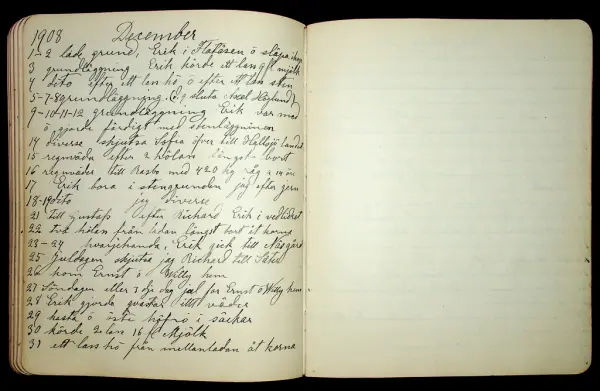 1908 December
1-2 lade grund, Erik i Flatåsen ö släpa
3 grundläggning Erik körde ett lass mjölk
4 dito efter ett lass hö, ö efter ett lass sten
5-7-8 grundläggning. sluta Axel Höglund
9-10-11-12 grundläggning Erik var med
ö gjorde färdigt med stenläggningen
14 diverse skjutsa Sofia öfver till Hallsjö landet
15 regnväder efter 2 hölan längst bort
16 regnväder till Rasts med 420 kg råg
17 Erik bora i stengrunden jag efter jern
18-19 dito jag diverse
21 till Gustafs efter Richard Erik i vedlidret
22 två höten från ladan längst bort åt korna
23-24 hvarjehanda, Erik gick till Näsgård
25 Juldagen skjutsa jag Richard till Säter
26 kom Ernst ö Willy hem
27 Söndagen eller 3dje dag jul for Ernst ö Willy hem
28 Erik gjorde qvastar illt väder
29 kasta ö öste höfrö i säckar
30 körde 2 len 16 Mjölk
31 ett lass hö från mellanladan åt korna